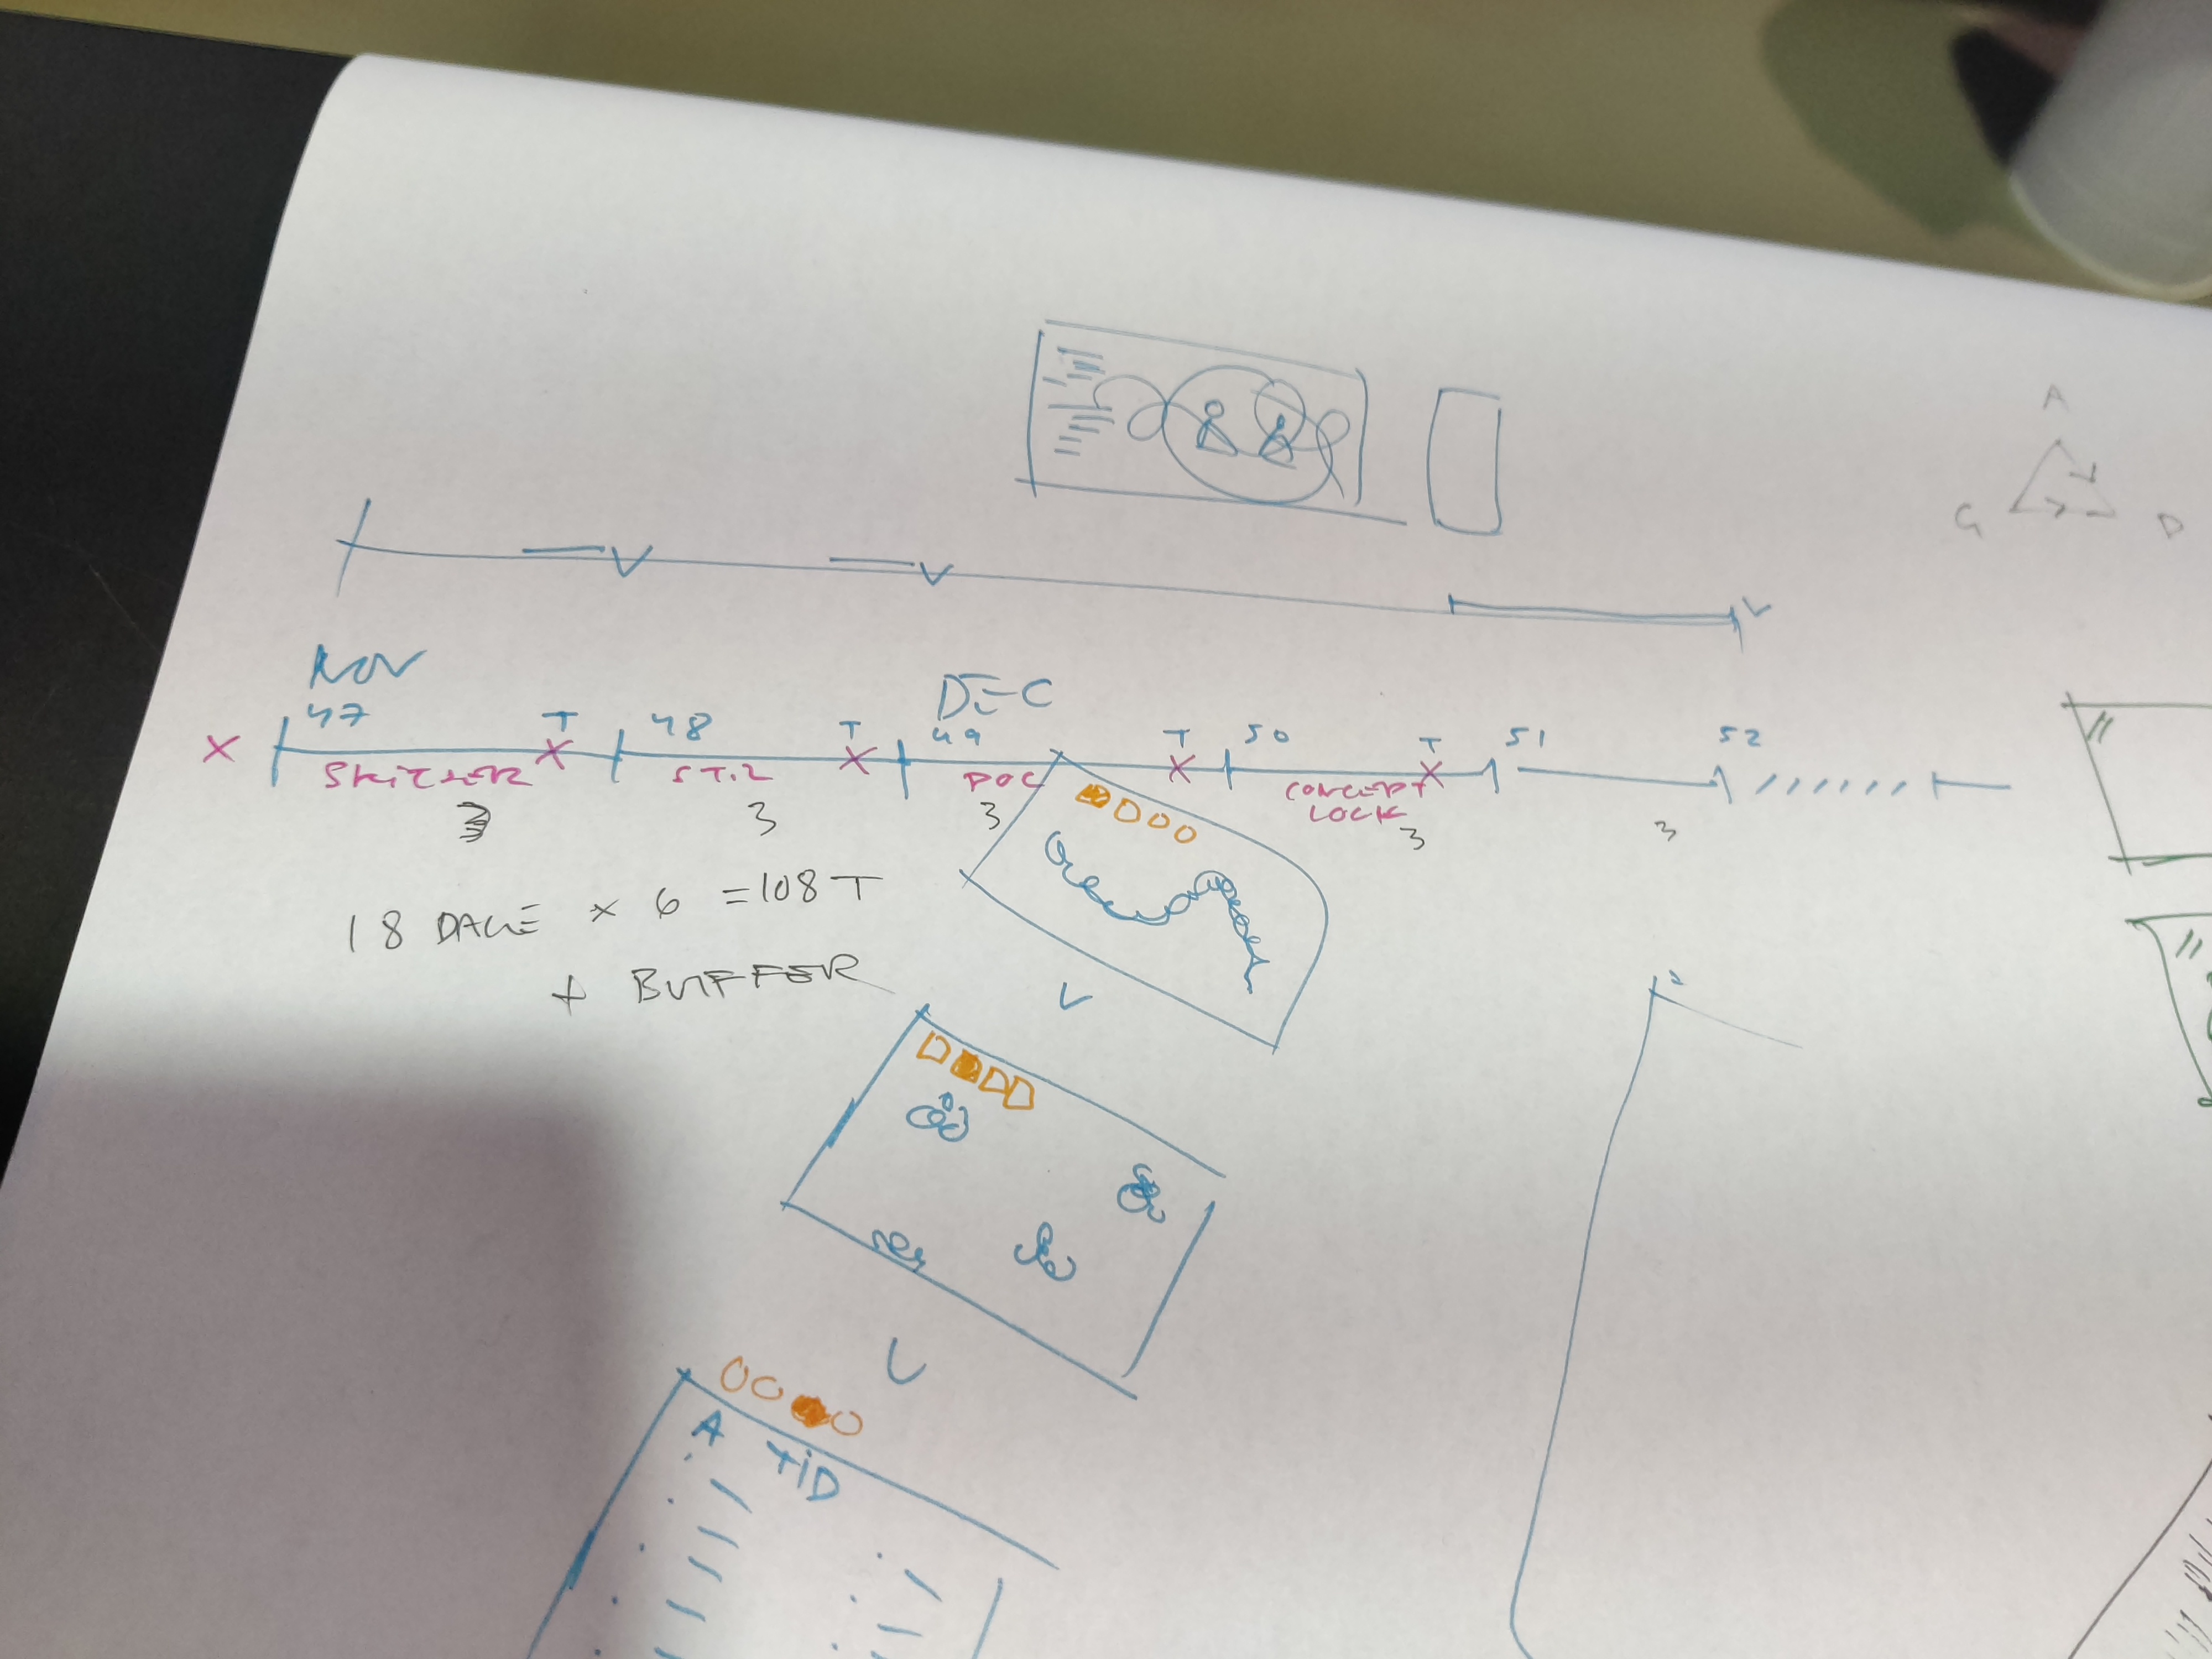 A
G D
NOV DEC
47 T 48 T 49 T 50 T 51 52
X SKITSER X ST.2 X POC X CONCEPT X
LOCK
3 3 3 3 3
18 DAGE × 6 = 108 T
+ BUFFER
A TID